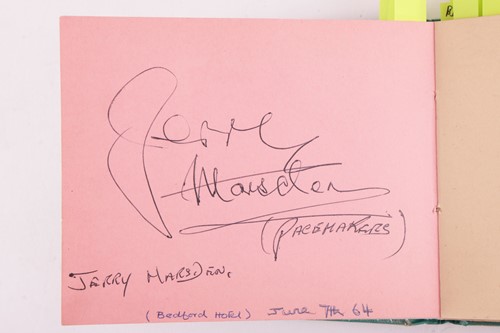 Gerry
Marsden
(PACEMAKERS)
JERRY MARSDEN.
(Bedford Hotel) June 7th 64